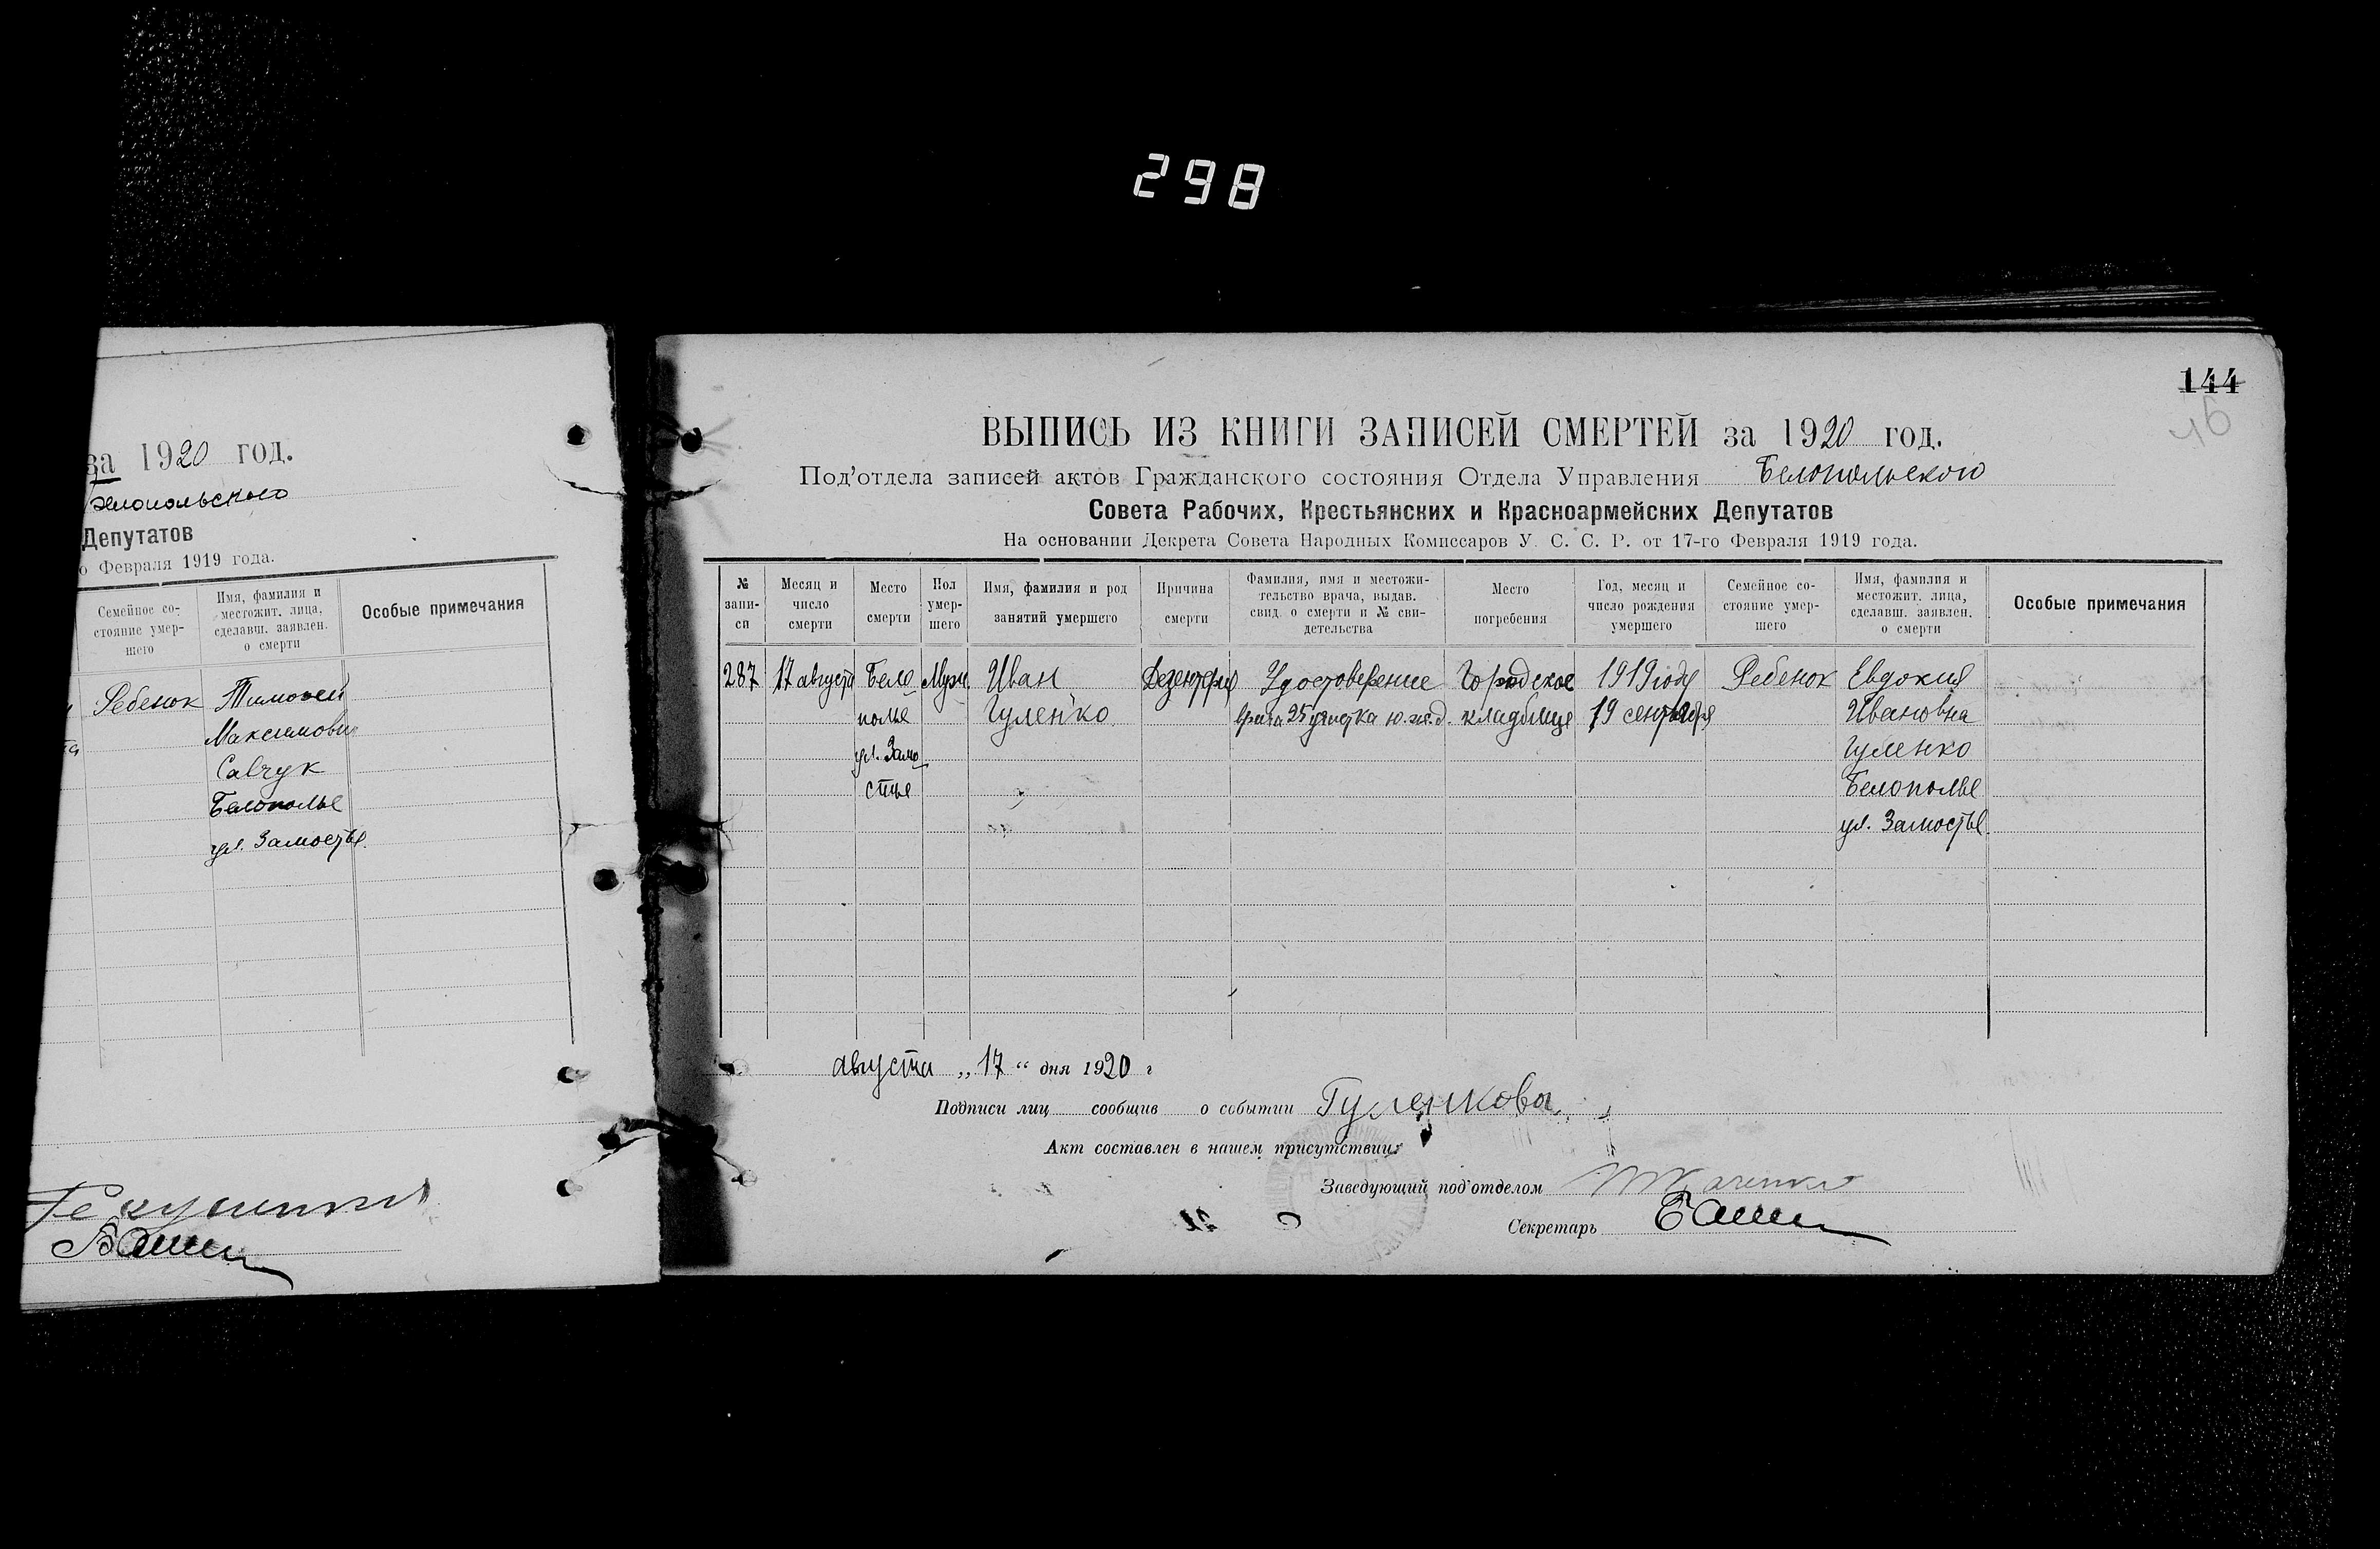 298
за 1920 год.
Депутатов
Февраля 1919 года.
Семейное со-
стояние умер-
шего
Имя, фамилия и
местожит. лица,
сделавш. заявлен.
о смерти
Особые примечания
Ребенок
Тимофей
Савчук
Белополье
ул. Замостье
144
46
ВЫПИСЬ ИЗ КНИГИ ЗАПИСЕЙ СМЕРТЕЙ за 1920 год.
Под'отдела записей актов Гражданского состояния Отдела Управления Белопольского
Совета Рабочих, Крестьянских и Красноармейских Депутатов
На основании Декрета Совета Народных Комиссаров У. С. С. Р. от 17-го Февраля 1919 года.
№
запи-
си
Месяц и
число
смерти
Место
смерти
Пол
умер-
шего
Имя, фамилия и род
занятий умершего
Причина
смерти
Фамилия, имя и местожи-
тельство врача, выдав.
свид. о смерти и № сви-
детельства
Место
погребения
Год, месяц и
число рождения
умершего
Семейное со-
стояние умер-
шего
Имя, фамилия и
местожит. лица,
сделавш. заявлен.
о смерти
Особые примечания
287
17 августа
Бело
полье
ул. Замо
стье
Муж.
Иван
Гуленко
Дезентерия
Удостоверение
врача 25 участка ю.ж.д.
Городское
кладбище
1919 года
19 сентября
Ребенок
Евдокия
Ивановна
Гуленко
Белополье
ул. Замостье
августа „17“ дня 1920 г
Подписи лиц сообщив о событии Гуленкова
Акт составлен в нашем присутствии:
Заведующий под'отделом
Секретарь